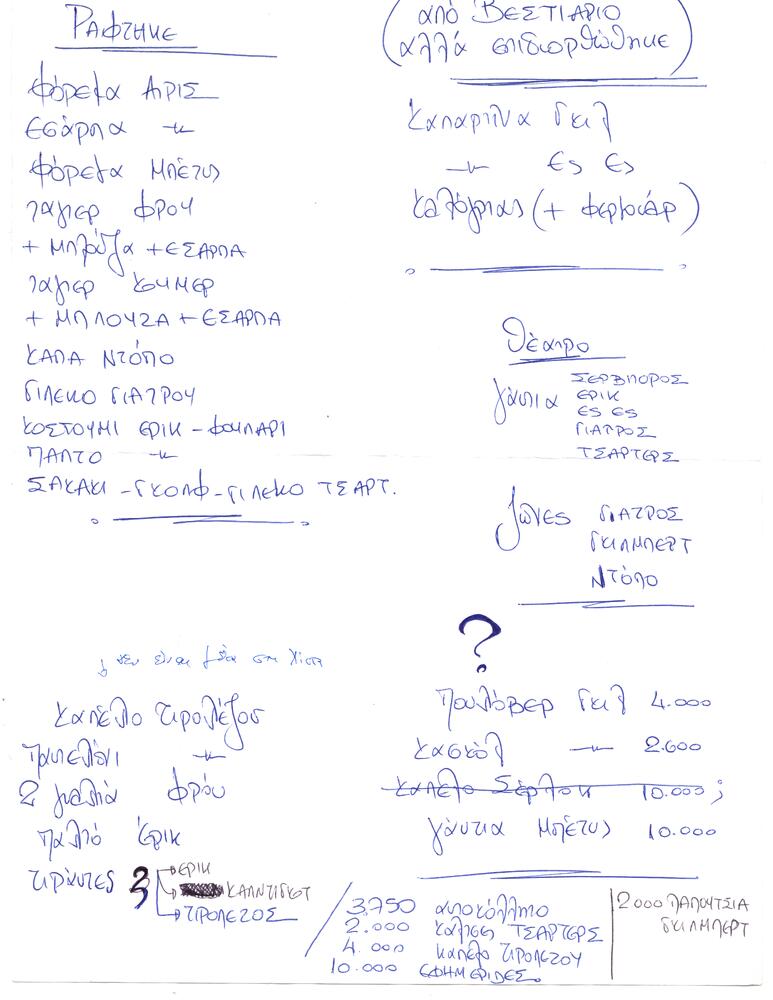 ΡΑΦΤΗΚΕ
φόρεμα ΑΙΡΙΣ
ΕΣάρπα -〃-
φόρεμα ΜΠέτυ
ταγιερ ΦΡΟΥ
+ Μπλούζα + ΕΣΑΡΠΑ
ταγιερ ΚΟΥΜΕΡ
+ ΜΠΛΟΥΖΑ + ΕΣΑΡΠΑ
ΚΑΠΑ ΝΤόΠΟ
ΓΙΛΕΚΟ ΓΙΑΤΡΟΥ
ΚΟΣΤΟΥΜΙ ΕΡΙΚ - ΦΟΥΛΑΡΙ
ΠΑΛΤΟ -〃-
ΣΑΚΑΚΙ - ΓΚΟΛΦ - ΓΙΛΕΚΟ ΤΣΑΡΤ.
(από ΒΕΣΤΙΑΡΙΟ
αλλά επιδιορθώθηκε)
Καπαρτίνα Γκιλ
-〃- Ες Ες
Καλόγριας (+ φερμουάρ)
Θέατρο
γάντια ΣΕΡΒΙΤΟΡΟΣ
ΕΡΙΚ
ΕΣ ΕΣ
ΓΙΑΤΡΟΣ
ΤΣΑΡΤΕΡΣ
ζώνες ΓΙΑΤΡΟΣ
ΓΚΙΛΜΠΕΡΤ
ΝΤόΠΟ
δεν είναι μέσα στη λίστα
Καπέλο τιρολέζου
Παντελόνι -〃-
2 γυαλιά φρόυ
παλτό Έρικ
τιράντες 3 ΕΡΙΚ
ΚΑΛΝΤΙΚΟΤ
ΤΙΡΟΛΕΖΟΣ
?
Πουλόβερ Γκιλ 4.000
Κασκόλ -〃- 2.600
Καπέλο Σέρλοκ 10.000 ;
γάντια Μπέτυ 10.000
3.750 αυτοκόλλητο
2.000 κάλτσες ΤΣΑΡΤΕΡΣ
4.000 καπέλο ΤΙΡΟΛΕΖΟΥ
10.000 ΕΦΗΜΕΡΙΔΕΣ.
2000 ΠΑΠΟΥΤΣΙΑ
ΓΚΙΛΜΠΕΡΤ